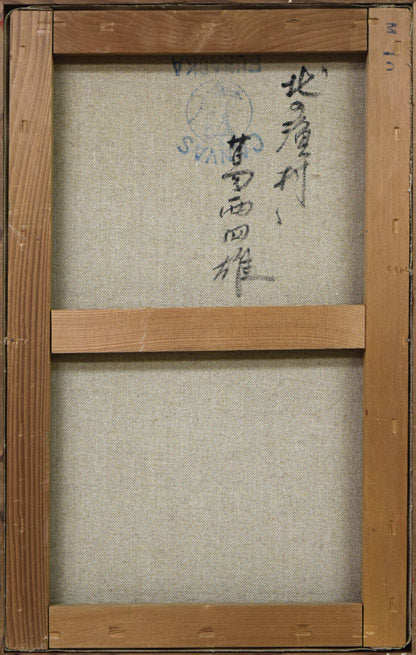 北の漁村
葛西四雄
M10
FUNAOKA
CANVAS